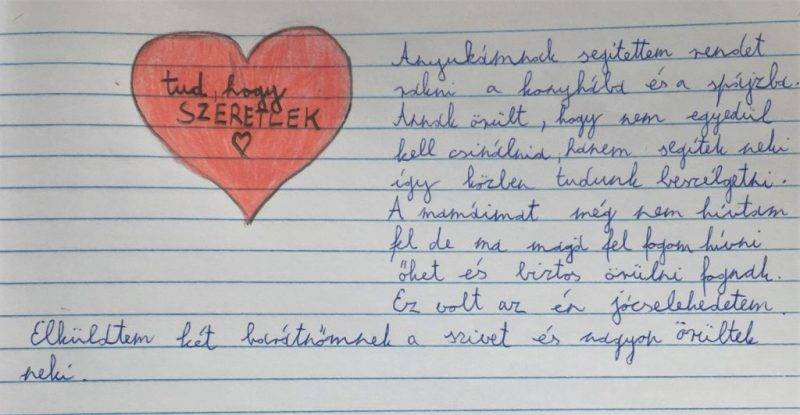 tud, hogy
SZERETLEK
Anyukámnak segítettem rendet
rakni a konyhába és a spájzba.
Annak örült, hogy nem egyedül
kell csinálnia, hanem segítek neki
így közben tudunk beszélgetni.
A mamáimat még nem hívtam
fel de ma majd fel fogom hívni
őket és biztos örülni fognak.
Ez volt az én jócselekedetem.
Elküldtem két barátnőmnek a szivet és nagyon örültek
neki.